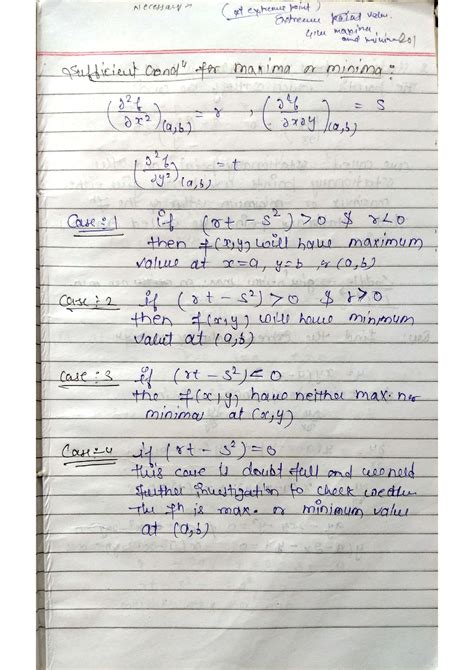 Necessary
(at extreme point)
Extreme point value
give maxima
and minima
Sufficient condⁿ for maxima or minima:
(∂²f/∂x²)(a,b) = r , (∂²f/∂x∂y)(a,b) = S
(∂²f/∂y²)(a,b) = t
Case:1 if (rt - s²) > 0 & r<0
then f(x,y) will have maximum
value at x=a, y=b, (a,b)
Case:2 if (rt - s²) > 0 & r>0
then f(x,y) will have minimum
value at (a,b)
Case:3 if (rt - s²) < 0
the f(x,y) have neither max. nor
minima, at (x,y)
Case:4 if (rt - s²) = 0
this case is doubt full and we need
further investigation to check
the fn is max. or minimum value
at (a,b)